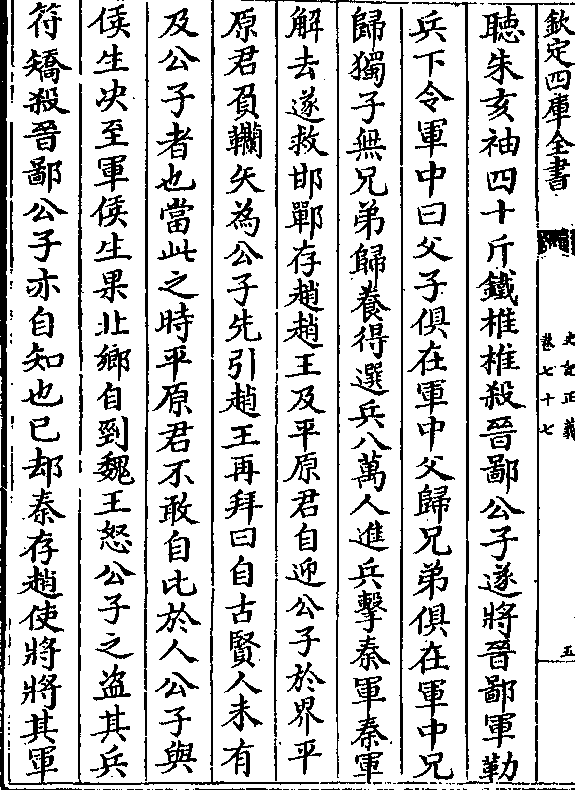 欽定四庫全書
史記正義
卷七十七
五
聴朱亥袖四十斤鐵椎椎殺晉鄙公子遂將晉鄙軍勒
兵下令軍中曰父子俱在軍中父歸兄弟俱在軍中兄
歸獨子無兄弟歸養得選兵八萬人進兵擊秦軍秦軍
解去遂救邯鄲存趙趙王及平原君自迎公子於界平
原君負韊矢為公子先引趙王再拜曰自古賢人未有
及公子者也當此之時平原君不敢自比於人公子與
侯生决至軍侯生果北鄉自剄魏王怒公子之盗其兵
符矯殺晉鄙公子亦自知也已却秦存趙使將將其軍